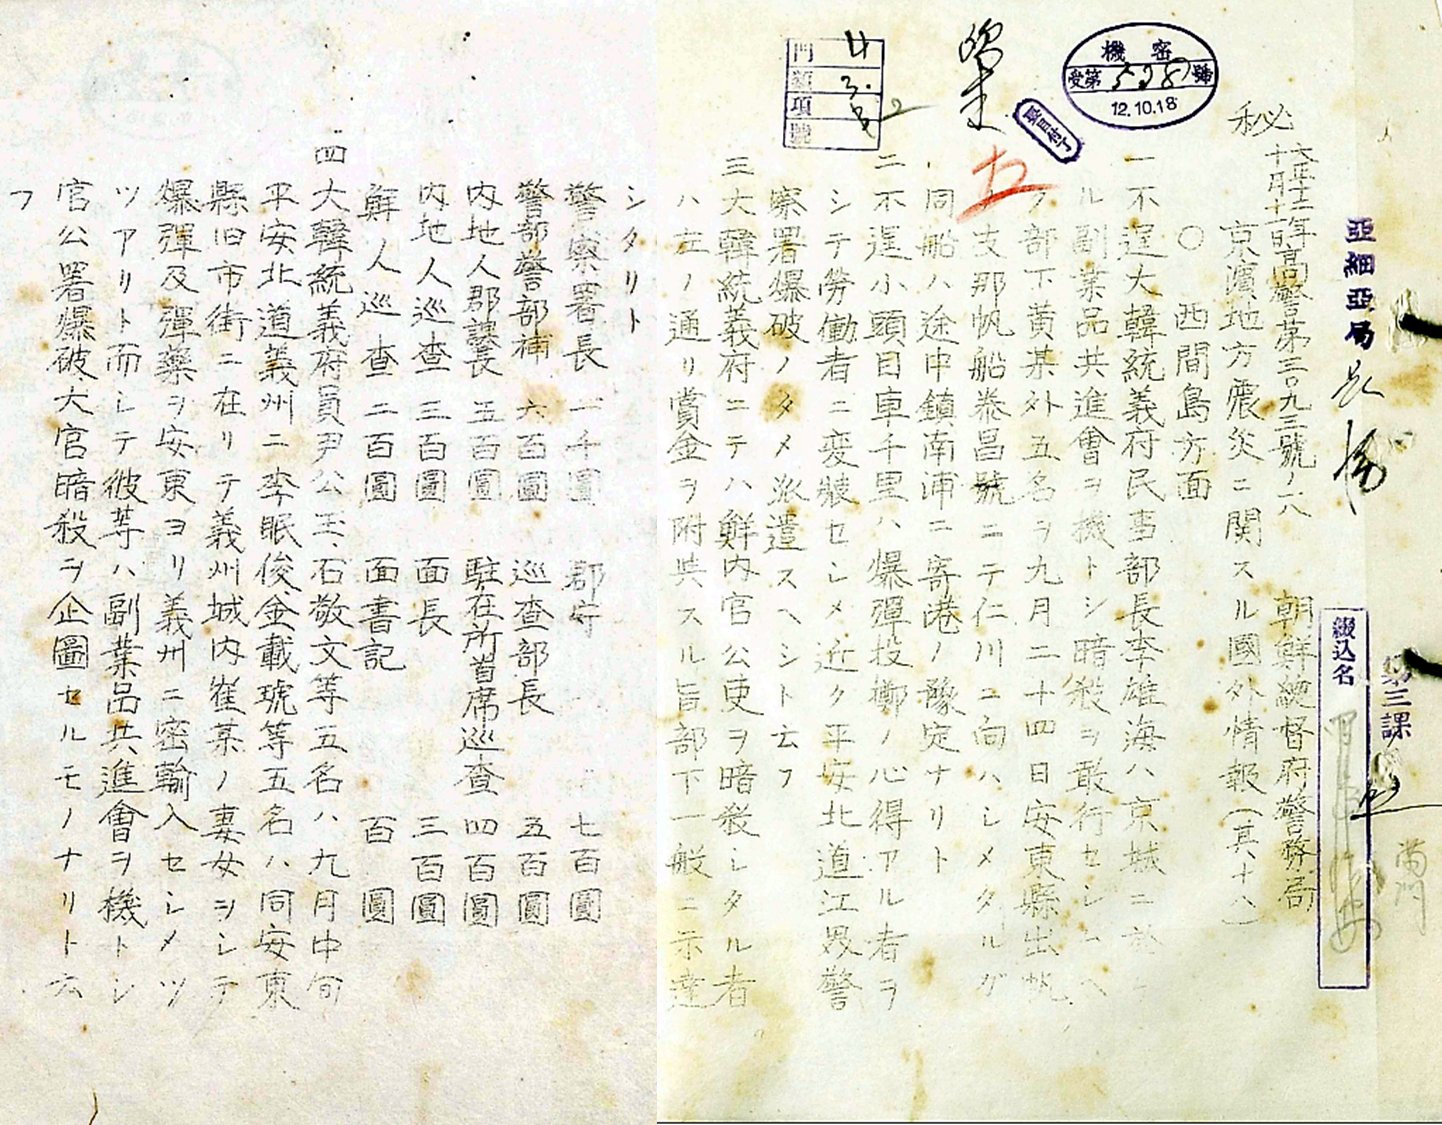 機密
受第528號
12.10.18
門 4
類 3.
項
號
亞細亞局
第三課
綴込名
秘
大正十二年
十月十一日
高警第三〇九三號ノ一八
朝鮮總督府警務局
京濱地方震災ニ関スル國外情報(其十八)
〇西間島方面
一不逞大韓統義府民事部長李雄海ハ京城ニ於ケ
ル副業品共進會ヲ機トシ暗殺ヲ敢行セシムヘ
ク部下黄某外五名ヲ九月二十四日安東縣出帆
ノ支那帆船泰昌號ニテ仁川ニ向ハシメタルガ
同船ハ途中鎮南浦ニ寄港ノ豫定ナリト
二不逞小頭目車千里ハ爆彈投擲ノ心得アル者ヲ
シテ勞働者ニ変裝セシメ近ク平安北道江界警
察署爆破ノタメ派遣スヘシト云フ
三大韓統義府ニテハ鮮内官公吏ヲ暗殺シタル者
ハ左ノ通リ賞金ヲ附與スル旨部下一般ニ示達
シタリト
警察署長 一千圓 郡守 七百圓
警部警部補 六百圓 巡査部長 五百圓
内地人郡課長 五百圓 駐在所首席巡查 四百圓
内地人巡查 三百圓 面長 三百圓
鮮人巡查 二百圓 面書記 百圓
四大韓統義府員尹公玉、石敬文等五名ハ九月中旬
平安北道義州ニ李眠俊、金載琥等五名ハ同安東
縣旧市街ニ在リテ義州城内崔某ノ妻女ヲシテ
爆彈及彈藥ヲ安東ヨリ義州ニ密輸入セシメツ
ツアリト而シテ彼等ハ副業品共進會ヲ機トシ
官公署爆破、大官暗殺ヲ企圖セルモノナリト云
フ